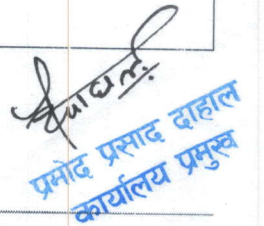 प्रमोद प्रसाद दाहाल
कार्यालय प्रमुख